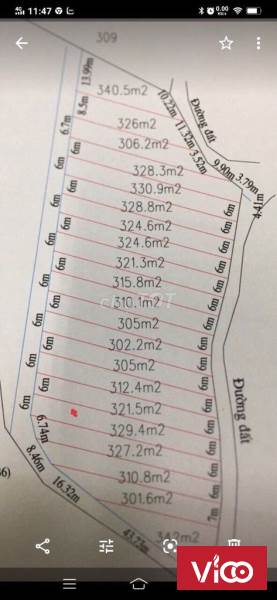 4G 11:47 0.00 K/s
309
13.99m
340.5m2
10.22m
Đường đất
8.5m
326m2
11.32m
6.7m
306.2m2
3.52m
9.90m
3.79m
4.41m
6m 6m 328.3m2
6m 6m 330.9m2
6m 6m 328.8m2 6m
6m 6m 324.6m2 6m
6m 6m 324.6m2 6m
6m 6m 321.3m2 6m
6m 6m 315.8m2 6m
6m 6m 310.1m2 6m
6m 6m 305m2 6m
6m 6m 302.2m2 6m
6m 6m 305m2 6m
6m 6m 312.4m2 6m
Đường đất
6m 6m 321.5m2 6m
6.74m 329.4m2 6m
8.46m 327.2m2 6m
6)
16.32m 310.8m2 6m
301.6m2 7m
43.73m
342m2
ViCO